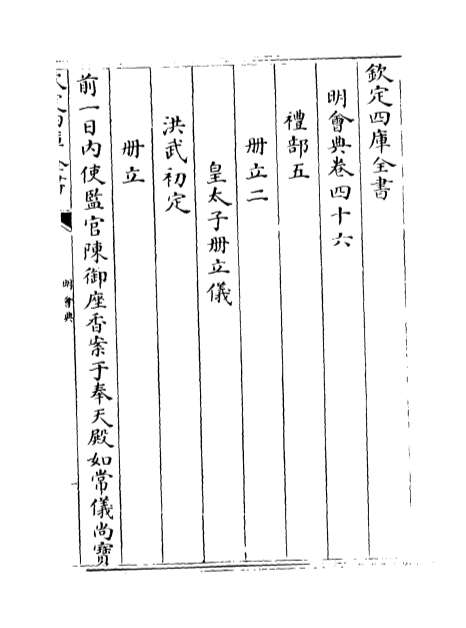 欽定四庫全書
明會典卷四十六
禮部五
册立二
皇太子册立儀
洪武初定
册立
前一日内使監官陳御座香案于奉天殿如常儀尚寶
明會典